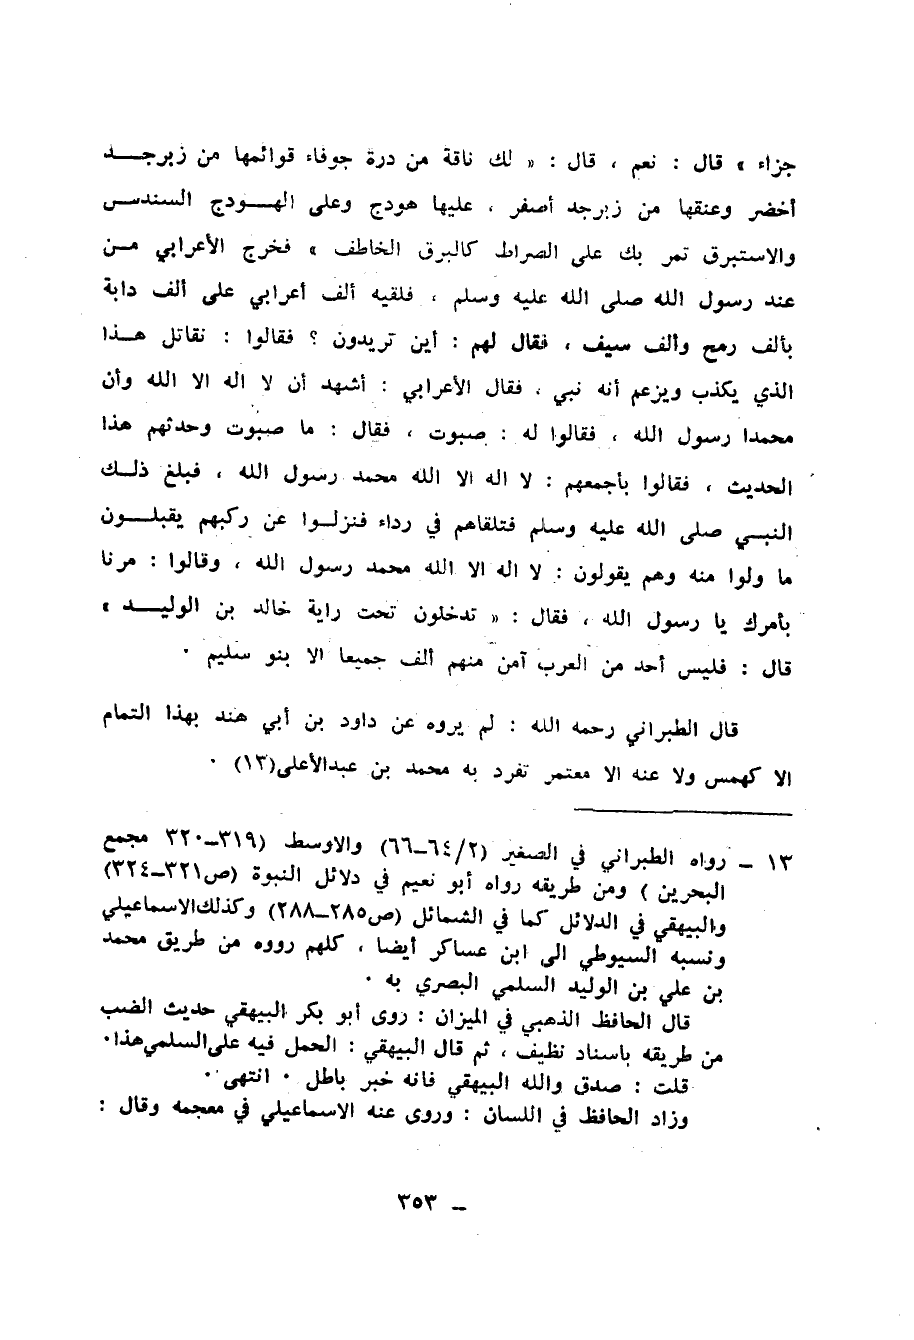 جزاء » قال : نعم ، قال : « لك ناقة من درة جوفاء قوائمها من زبرجد
أخضر وعنقها من زبرجد أصفر ، عليها هودج وعلى الهودج السندس
والاستبرق تمر بك على الصراط كالبرق الخاطف » فخرج الأعرابي من
عند رسول الله صلى الله عليه وسلم ، فلقيه ألف أعرابي على ألف دابة
بألف رمح وألف سيف ، فقال لهم : أين تريدون ؟ فقالوا : نقاتل هذا
الذي يكذب ويزعم أنه نبي ، فقال الأعرابي : أشهد أن لا اله الا الله وأن
محمدا رسول الله ، فقالوا له : صبوت ، فقال : ما صبوت وحدثهم هذا
الحديث ، فقالوا بأجمعهم : لا اله الا الله محمد رسول الله ، فبلغ ذلك
النبي صلى الله عليه وسلم فتلقاهم في رداء فنزلوا عن ركبهم يقبلون
ما ولوا منه وهم يقولون : لا اله الا الله محمد رسول الله ، وقالوا : مرنا
بأمرك يا رسول الله ، فقال : « تدخلون تحت راية خالد بن الوليد »
قال : فليس أحد من العرب آمن منهم ألف جميعا الا بنو سليم ٠
قال الطبراني رحمه الله : لم يروه عن داود بن أبي هند بهذا التمام
الا كهمس ولا عنه الا معتمر تفرد به محمد بن عبدالأعلى(١٣) ٠
١٣ – رواه الطبراني في الصغير (٦٤/٢–٦٦) والاوسط (٣١٩–٣٢٠ مجمع
البحرين ) ومن طريقه رواه أبو نعيم في دلائل النبوة (ص٣٢١–٣٢٤)
والبيهقي في الدلائل كما في الشمائل (ص٢٨٥–٢٨٨) وكذلك الاسماعيلي
ونسبه السيوطي الى ابن عساكر أيضا ، كلهم رووه من طريق محمد
بن علي بن الوليد السلمي البصري به ٠
قال الحافظ الذهبي في الميزان : روى أبو بكر البيهقي حديث الضب
من طريقه باسناد نظيف ، ثم قال البيهقي : الحمل فيه على السلمي هذا٠
قلت : صدق والله البيهقي فانه خبر باطل ٠ انتهى ٠
وزاد الحافظ في اللسان : وروى عنه الاسماعيلي في معجمه وقال :
– ٣٥٣